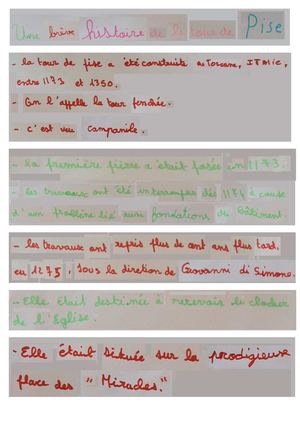 Une brève histoire de la tour de Pise
- la tour de pise a été construite en Toscane, ITALIE,
entre 1173 et 1350.
- On l'appelle la tour penchée.
- c'est un campanile.
- la première pierre a était posée en 1173.
- les travaux ont été interrompus dès 1174 à cause
d'un problème lié aux fondations du bâtiment.
- les travaux ont repris plus de cent ans plus tard,
en 1275, sous la direction de Giovanni di Simone.
- Elle était destinée à recevoir le clocher
de l'Eglise.
- Elle était située sur la prodigieuse
place des "Miracles".